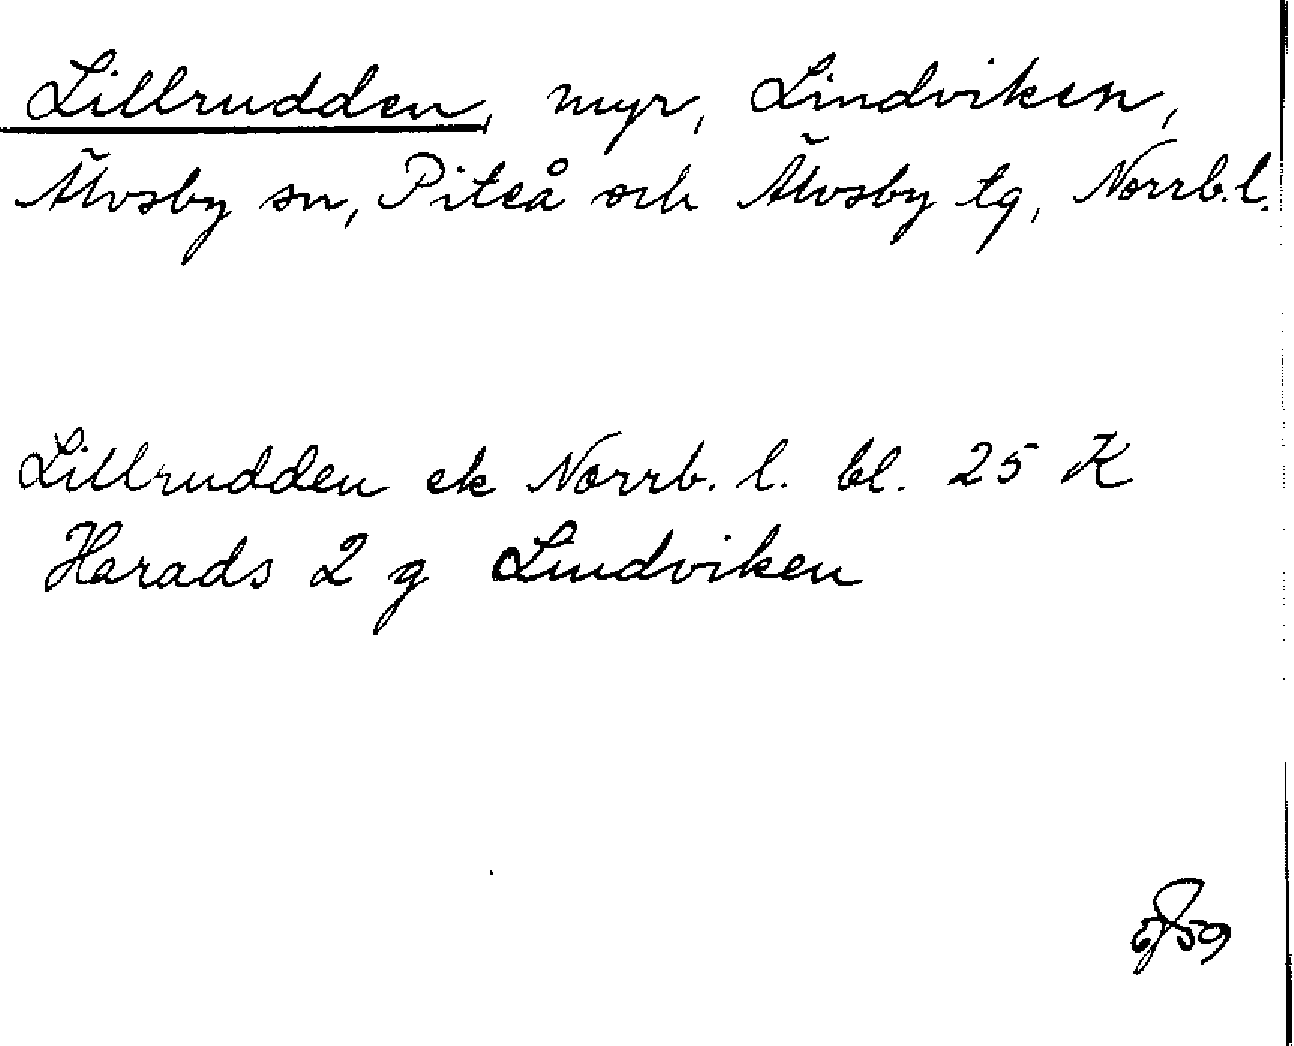 Lillrudden, myr, Lindviken,
Älvsby sn, Piteå och Älvsby tg, Norrb.l.
Lillrudden ek Norrb. l. bl. 25 K
Harads 2 g Lindviken